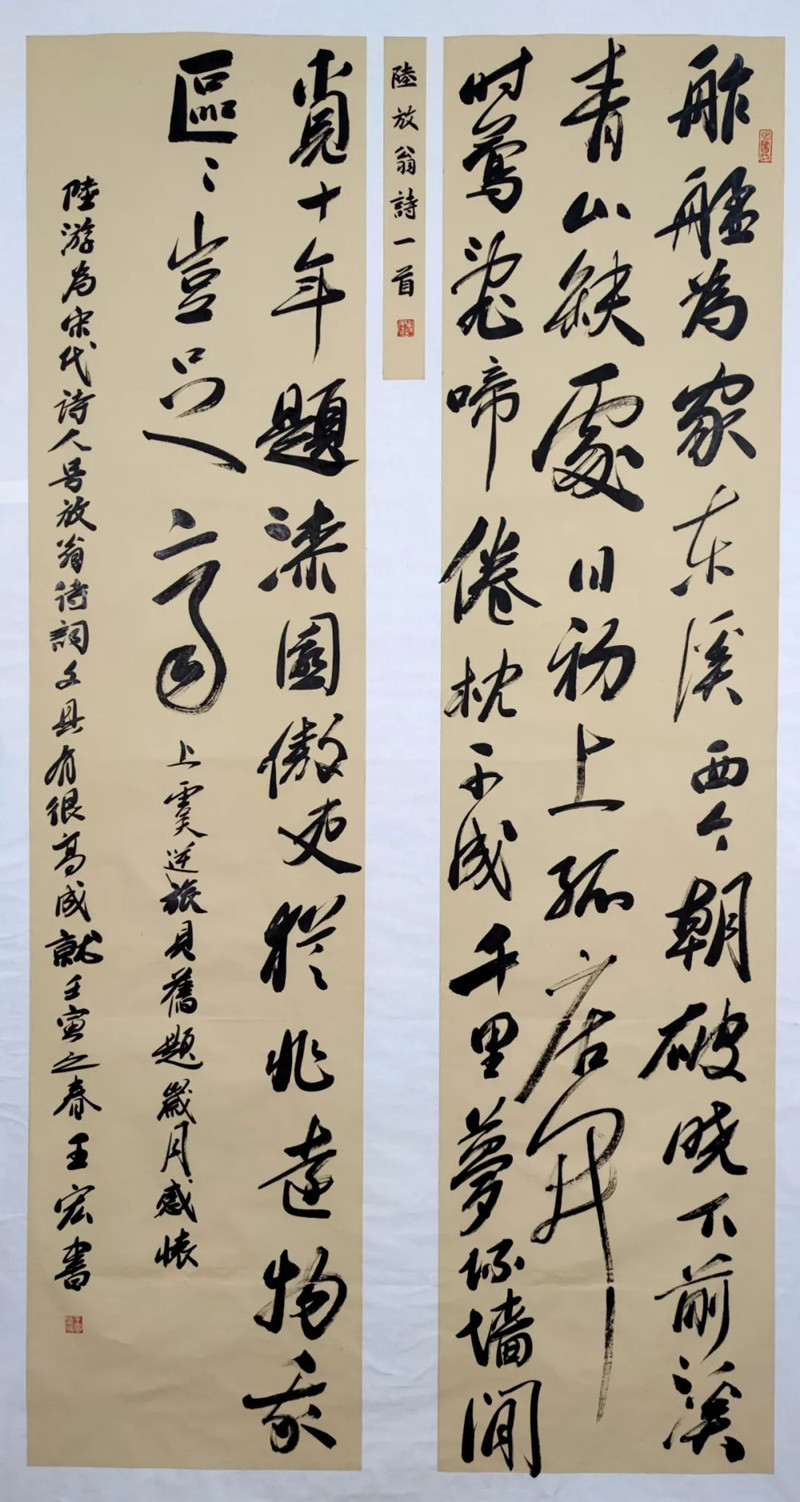 舴艋為家东溪西今朝破晓下前溪
青山缺處日初上孤店開
时鶯亂啼倦枕不成千里夢坏墙閒
陸放翁詩一首
覓十年題漆園傲吏犹非達物我
區〻豈足齊 上虞逆旅見舊題歲月感懐
陸游為宋代詩人号放翁诗詞文具有很高成就壬寅之春王宏書